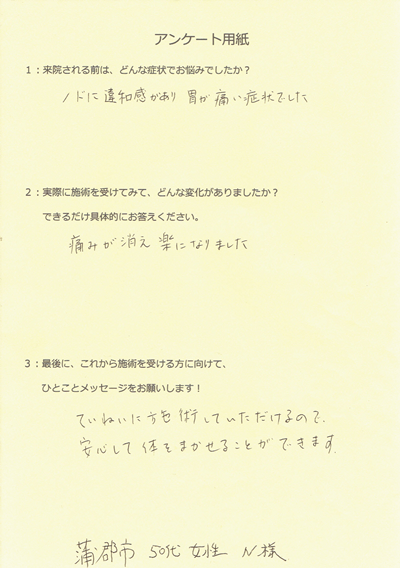 アンケート用紙
1：来院される前は、どんな症状でお悩みでしたか？
ノドに違和感があり 胃が痛い症状でした
2：実際に施術を受けてみて、どんな変化がありましたか？
できるだけ具体的にお答えください。
痛みが消え 楽になりました
3：最後に、これから施術を受ける方に向けて、
ひとことメッセージをお願いします！
ていねいに施術していただけるので、
安心して体をまかせることができます。
蒲郡市 50代 女性 N様